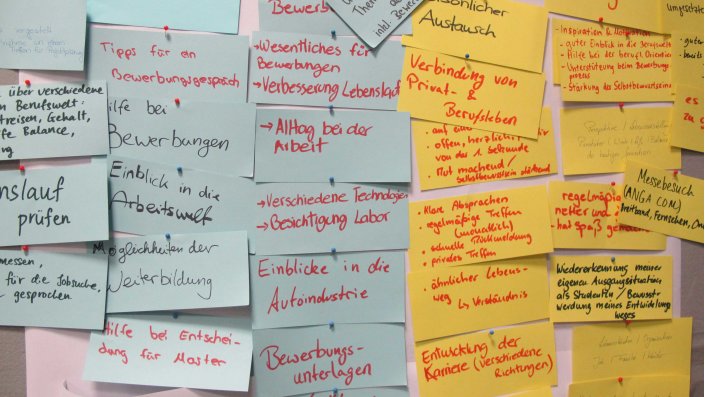 vorgestellt
über verschiedene
n Berufswelt:
treisen, Gehalt,
fe Balance,
ng
nslauf
prüfen
messen,
für die Jobsuche,
gesprochen
Tipps für ein
Bewerbungsgespräch
ilfe bei
Bewerbungen
Einblick in die
Arbeitswelt
Möglichkeiten der
Weiterbildung
Hilfe bei Entschei-
dung für Master
Bewerb
→Wesentliches für
Bewerbungen
→Verbesserung Lebenslauf
→ Alltag bei der
Arbeit
→Verschiedene Technologien
→ Besichtigung Labor
Einblicke in die
Autoindustrie
Bewerbungs-
unterlagen
The
inkl. Bewer
sönlicher
Austausch
Verbindung von
Privat- &
Berufsleben
· auf ein
· offen, herzlich
von der 1. Sekunde
· Mut machend/
Selbstbewusstsein stärkend
· klare Absprachen
· regelmäßige Treffen
(monatlich)
· schnelle Rückmeldung
· privates Treffen
· ähnlicher Lebens-
weg ↳ Verständnis
Entwicklung der
Karriere (verschiedene
Richtungen)
- Inspiration &
- guter Einblick in die Berufswelt
- Hilfe bei der berufl. Orientier
- Unterstützung beim Bewerbungs
prozess
- Stärkung des Selbstbewusstseins
regelmäßig
netter und
- hat Spaß gem
Messebesuch
(ANGA COM:
Breitband, Fernsehen, On
Wiedererkennung meiner
eigenen Ausgangssituation
als Studentin / Bewusst-
werdung meines Entwicklung
weges
umgesetzt
guter
bereits
es
zu g